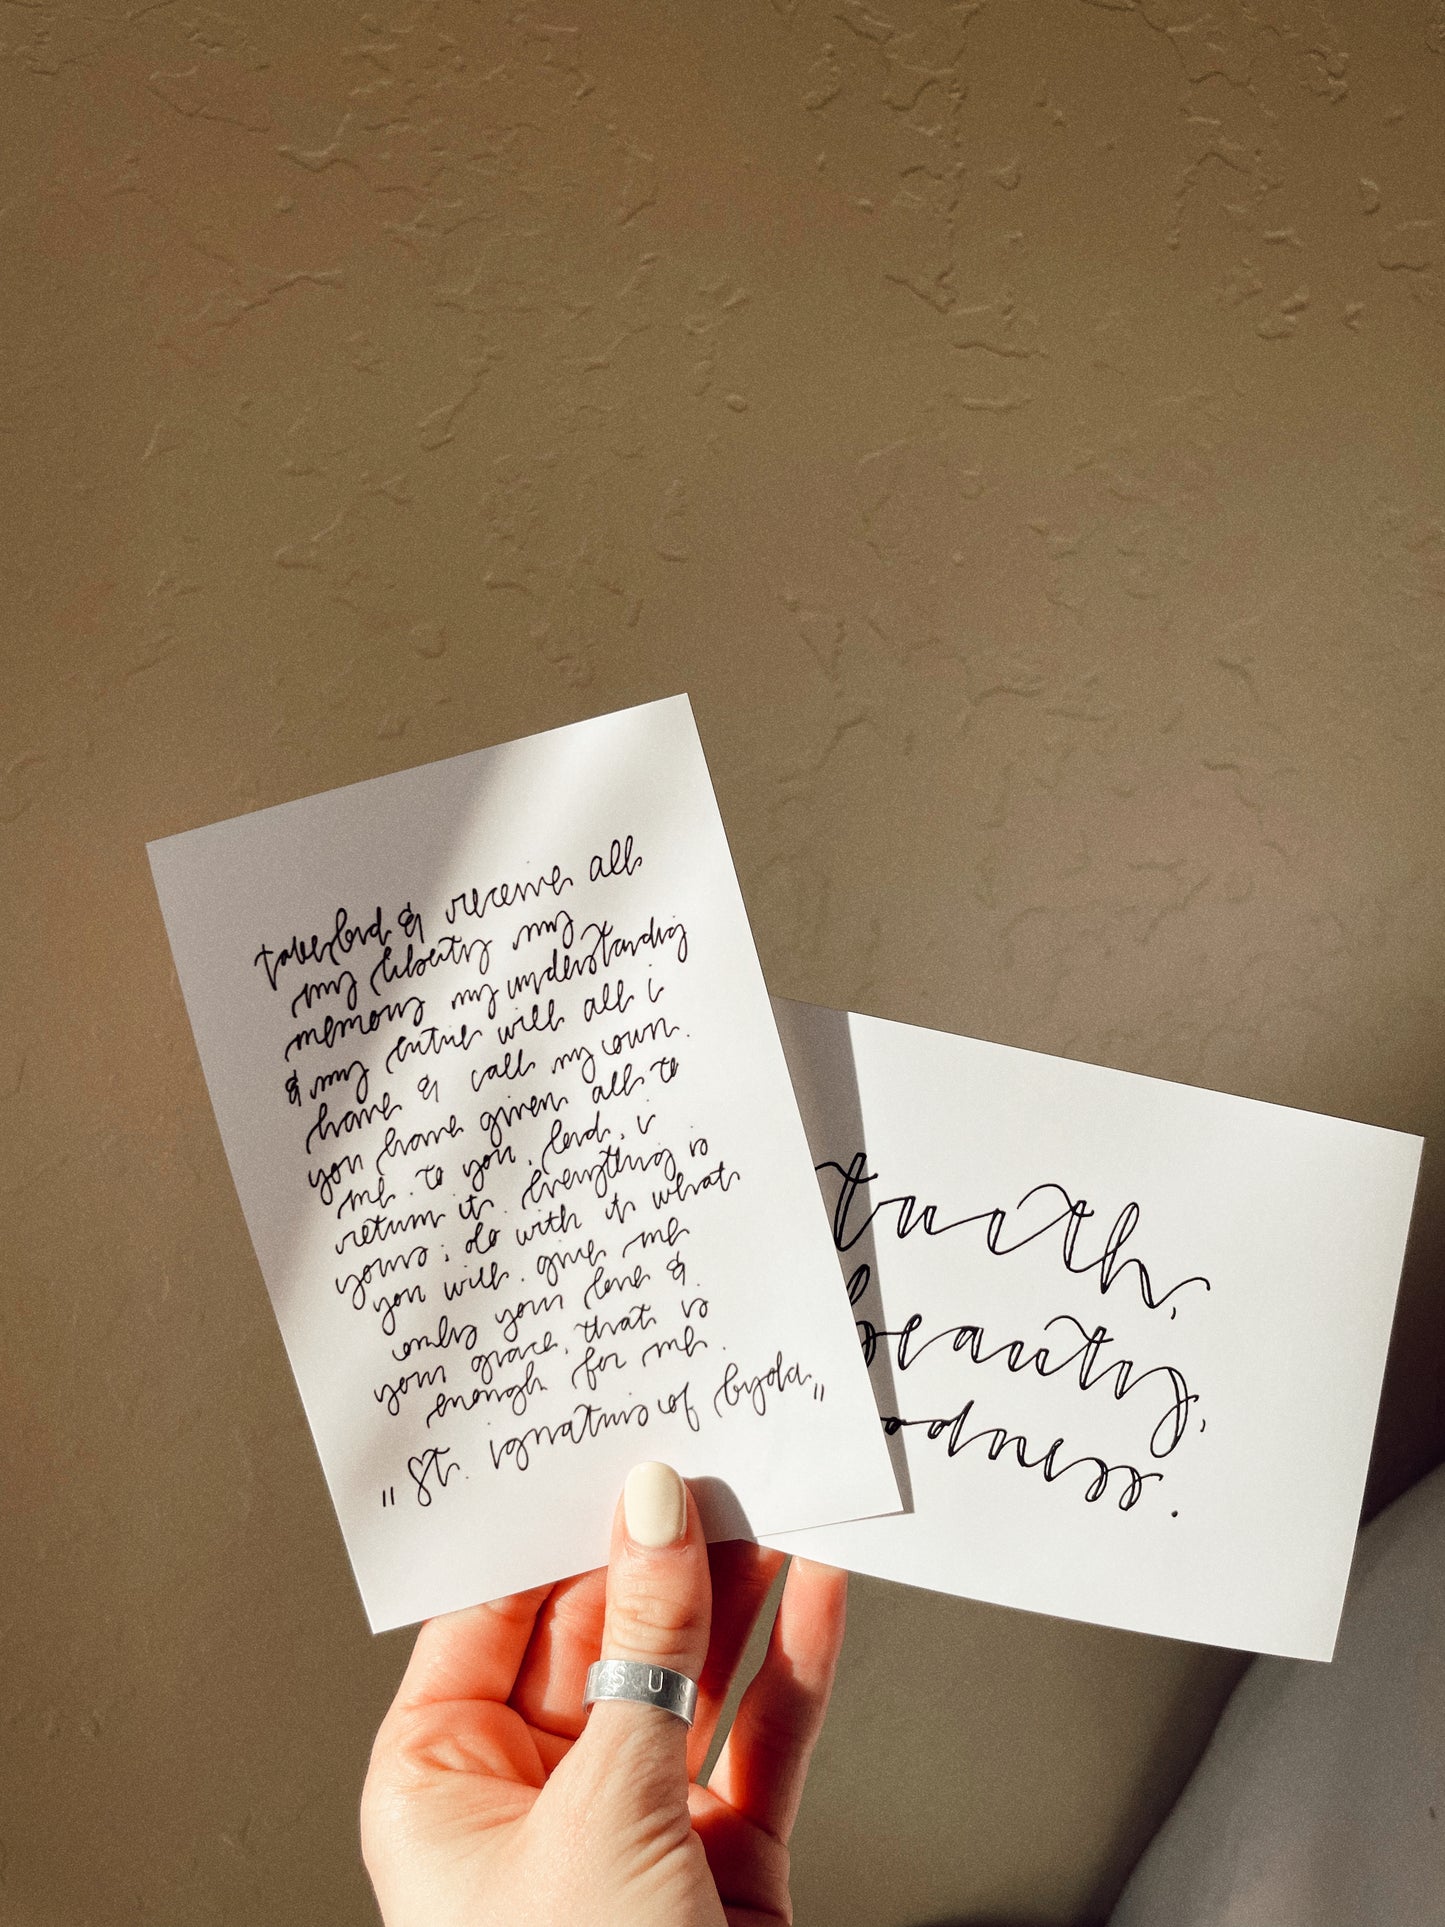 take lord & receive all
my liberty my
memory my understanding
& my entire will all i
have & call my own.
you have given all to
me. to you, lord, i
return it. everything is
yours; do with it what
you will. give me
only your love &
your grace, that is
enough for me.
"St. ignatius of loyola"
truth,
beauty,
oodness.
S U